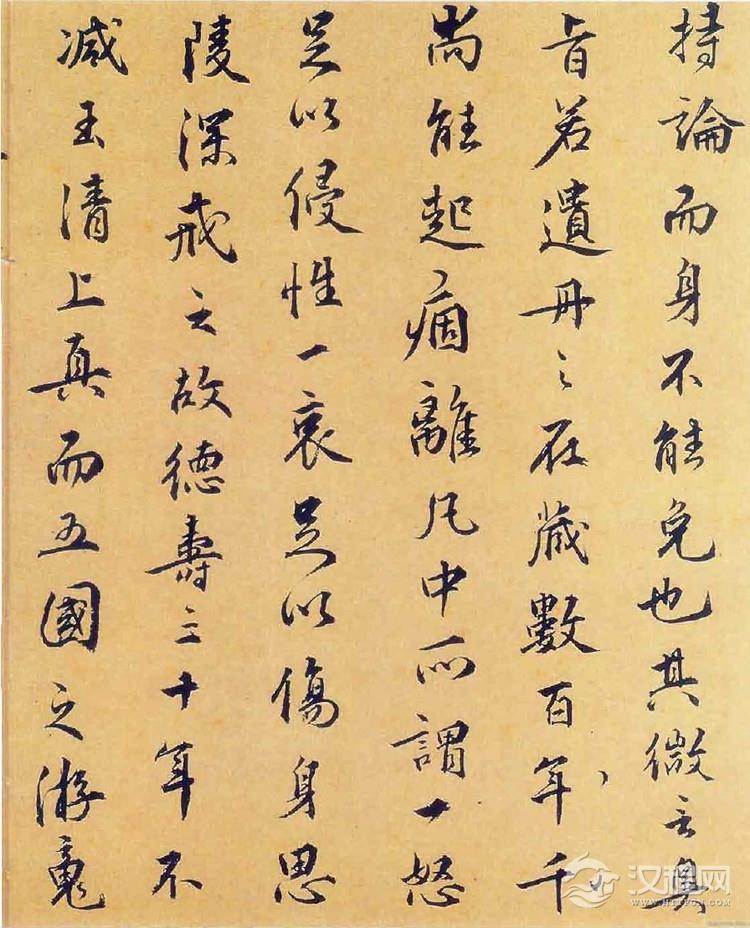 持論而身不能免也其微言奥
旨若遺丹之在藏數百年千
尚能起痼離凡中所謂一怒
足以侵性一哀足以傷身思
陵深戒之故德壽三十年不
減玉清上真而五國之游竟
汉程网
WWW.HTTPCN.COM